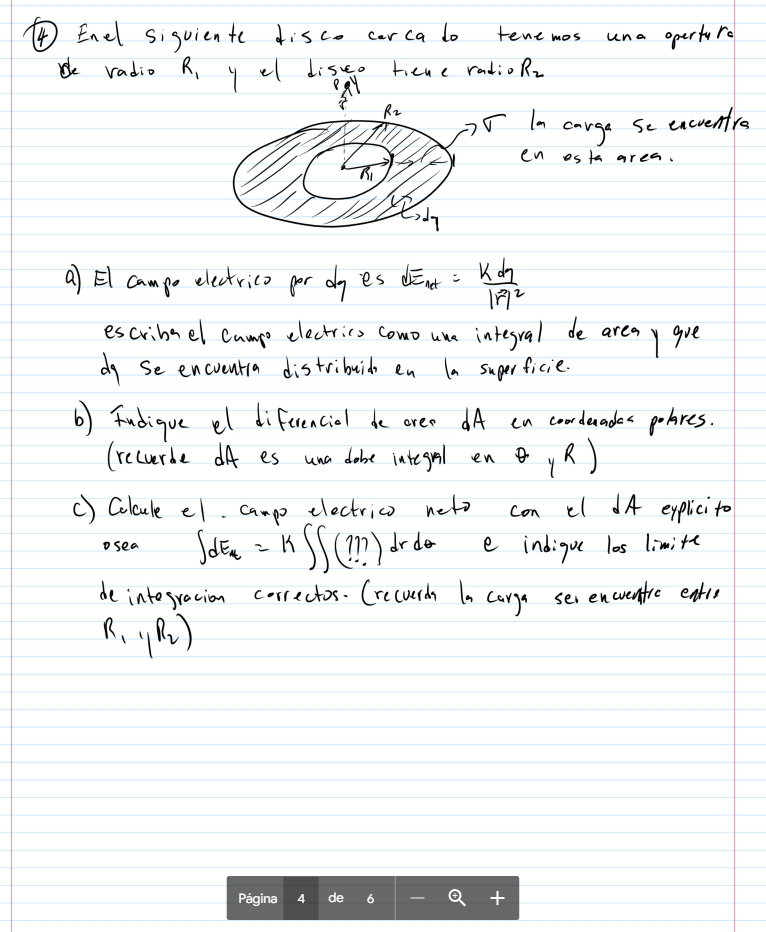 4 En el siguiente disco carcado tenemos una opertura
de radio R₁ y el disco tiene radio R₂
P
R₂
R₁
σ la carga se encuentra
en esta area.
dq
a) El campo electrico por dq es dE_net = K dq / |r⃗|²
escriba el campo electrico como una integral de area y que
dq se encuentra distribuido en la superficie.
b) Indique el diferencial de area dA en coordenadas polares.
(recuerde dA es una dobe integral en θ y R)
c) Calcule el. campo electrico neto con el dA explicito
osea ∫dE_net = K ∫∫ (???) dr dθ e indique los limite
de integracion correctos. (recuerda la carga se encuentra entre
R₁ y R₂)
Página 4 de 6 — +